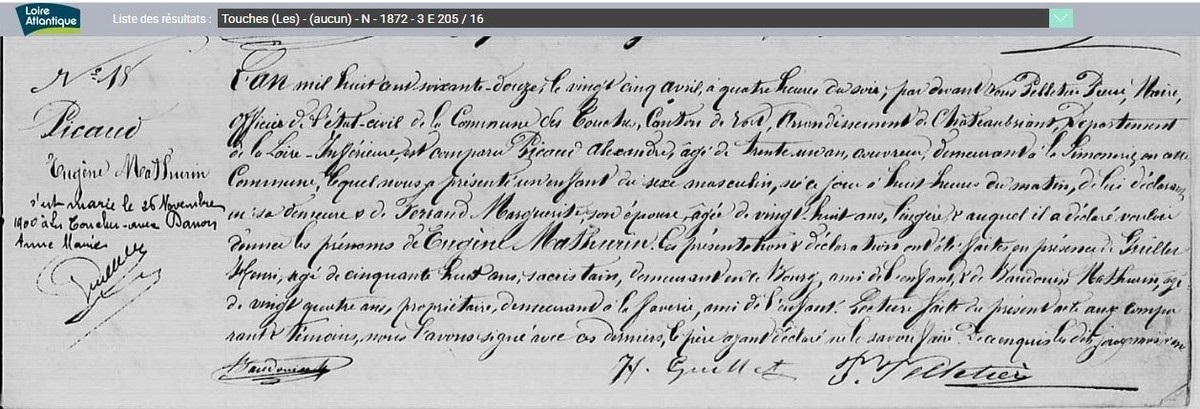 Loire
Atlantique
Liste des résultats :
Touches (Les) - (aucun) - N - 1872 - 3 E 205 / 16
N° 18
Picaud
Eugène Mathurin
s'est marié le 26 Novembre
1900 à les Touches avec Danion
Anne Marie
L'an mil huit cent soixante-douze, le vingt cinq avril, à quatre heures du soir, par devant nous Pelletier Pierre, Maire,
Officier de l'état-civil de la Commune des Touches, Canton de Nort, Arrondissement de Châteaubriant, Département
de la Loire-Inférieure, est comparu Picaud Alexandre, âgé de trente-un an, couvreur, demeurant à la Limonerie en cette
Commune, lequel nous a présenté un enfant du sexe masculin, né ce jour à huit heures du matin, de lui déclarant
en sa demeure & de Ferrand Marguerite, son épouse, âgée de vingt-huit ans, lingère & auquel il a déclaré vouloir
donner les prénoms de Eugène Mathurin. Les présentation & déclaration ont été faites en présence de Guillet
Henri, âgé de cinquante huit ans, sacristain, demeurant en ce Bourg, ami de l'enfant, & de Baudouin Mathurin, âgé
de vingt quatre ans, propriétaire, demeurant à la Favrie, ami de l'enfant. Lecture faite du présent acte aux compa
rant & témoins, nous l'avons signé avec ces derniers, le père ayant déclaré ne le savoir faire. De ce enquis les dits jour, mois & an
Baudouin
H. Guillet
P. Pelletier